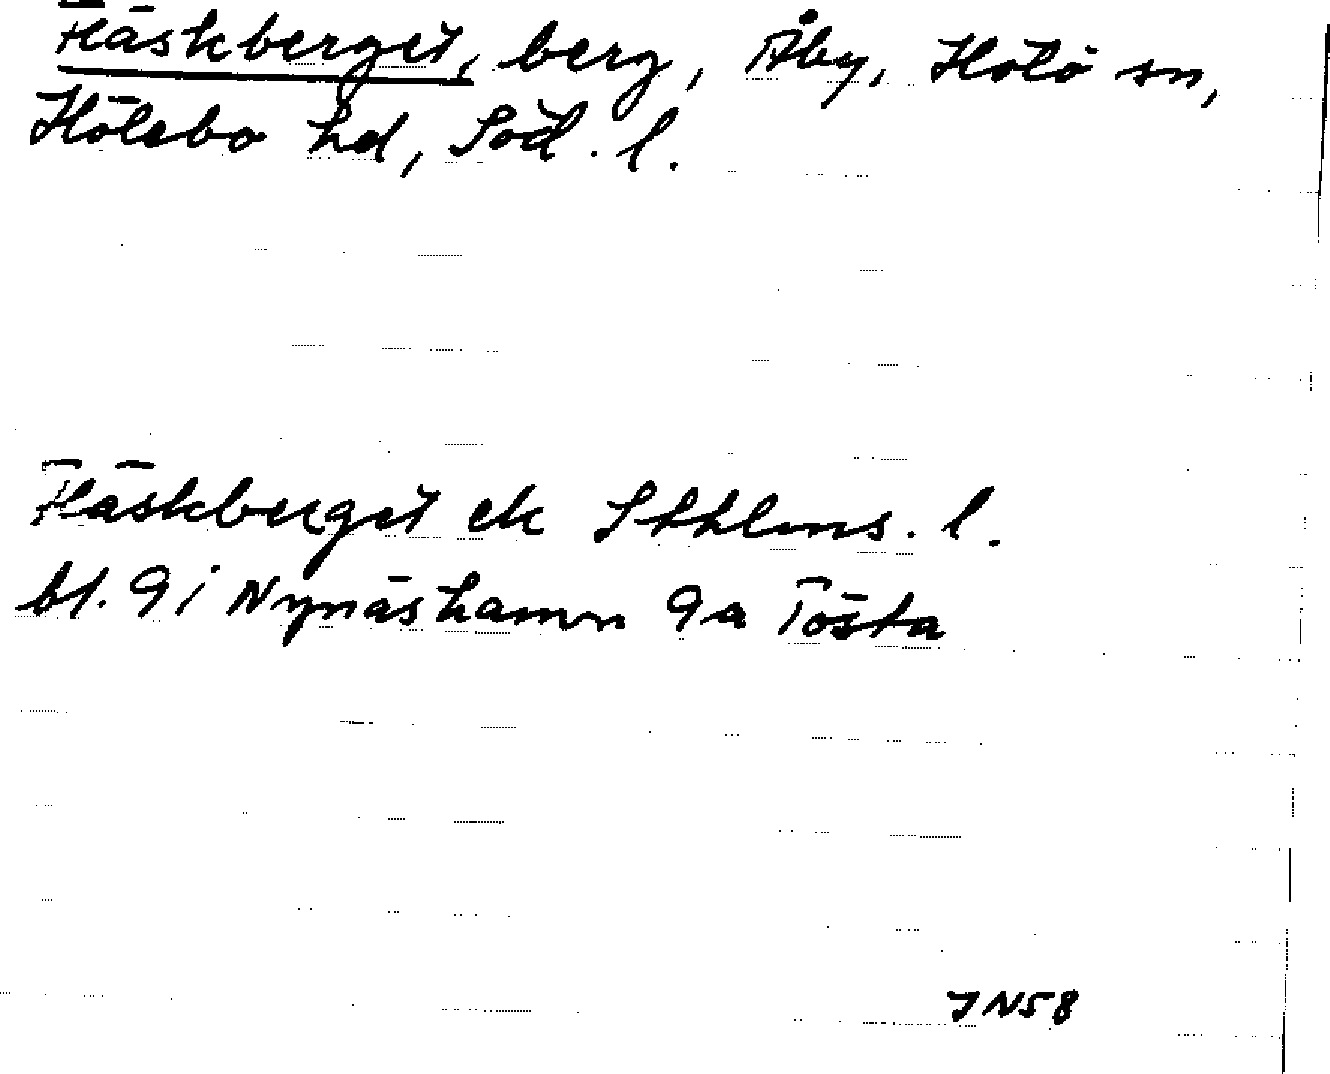 Fläskberget, berg, Åby, Hölö sn,
Hölebo hd, Söd. l.
Fläskberget ek Sthlms. l.
bl. 9i Nynäshamn 9a Tösta
JN58